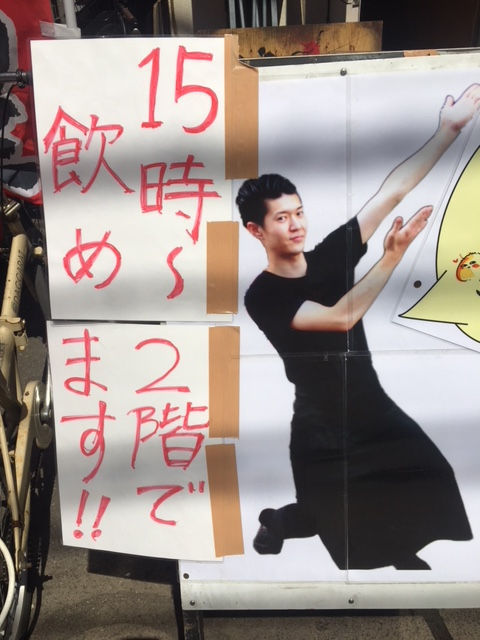 15時〜
2階で
飲め
ます!!